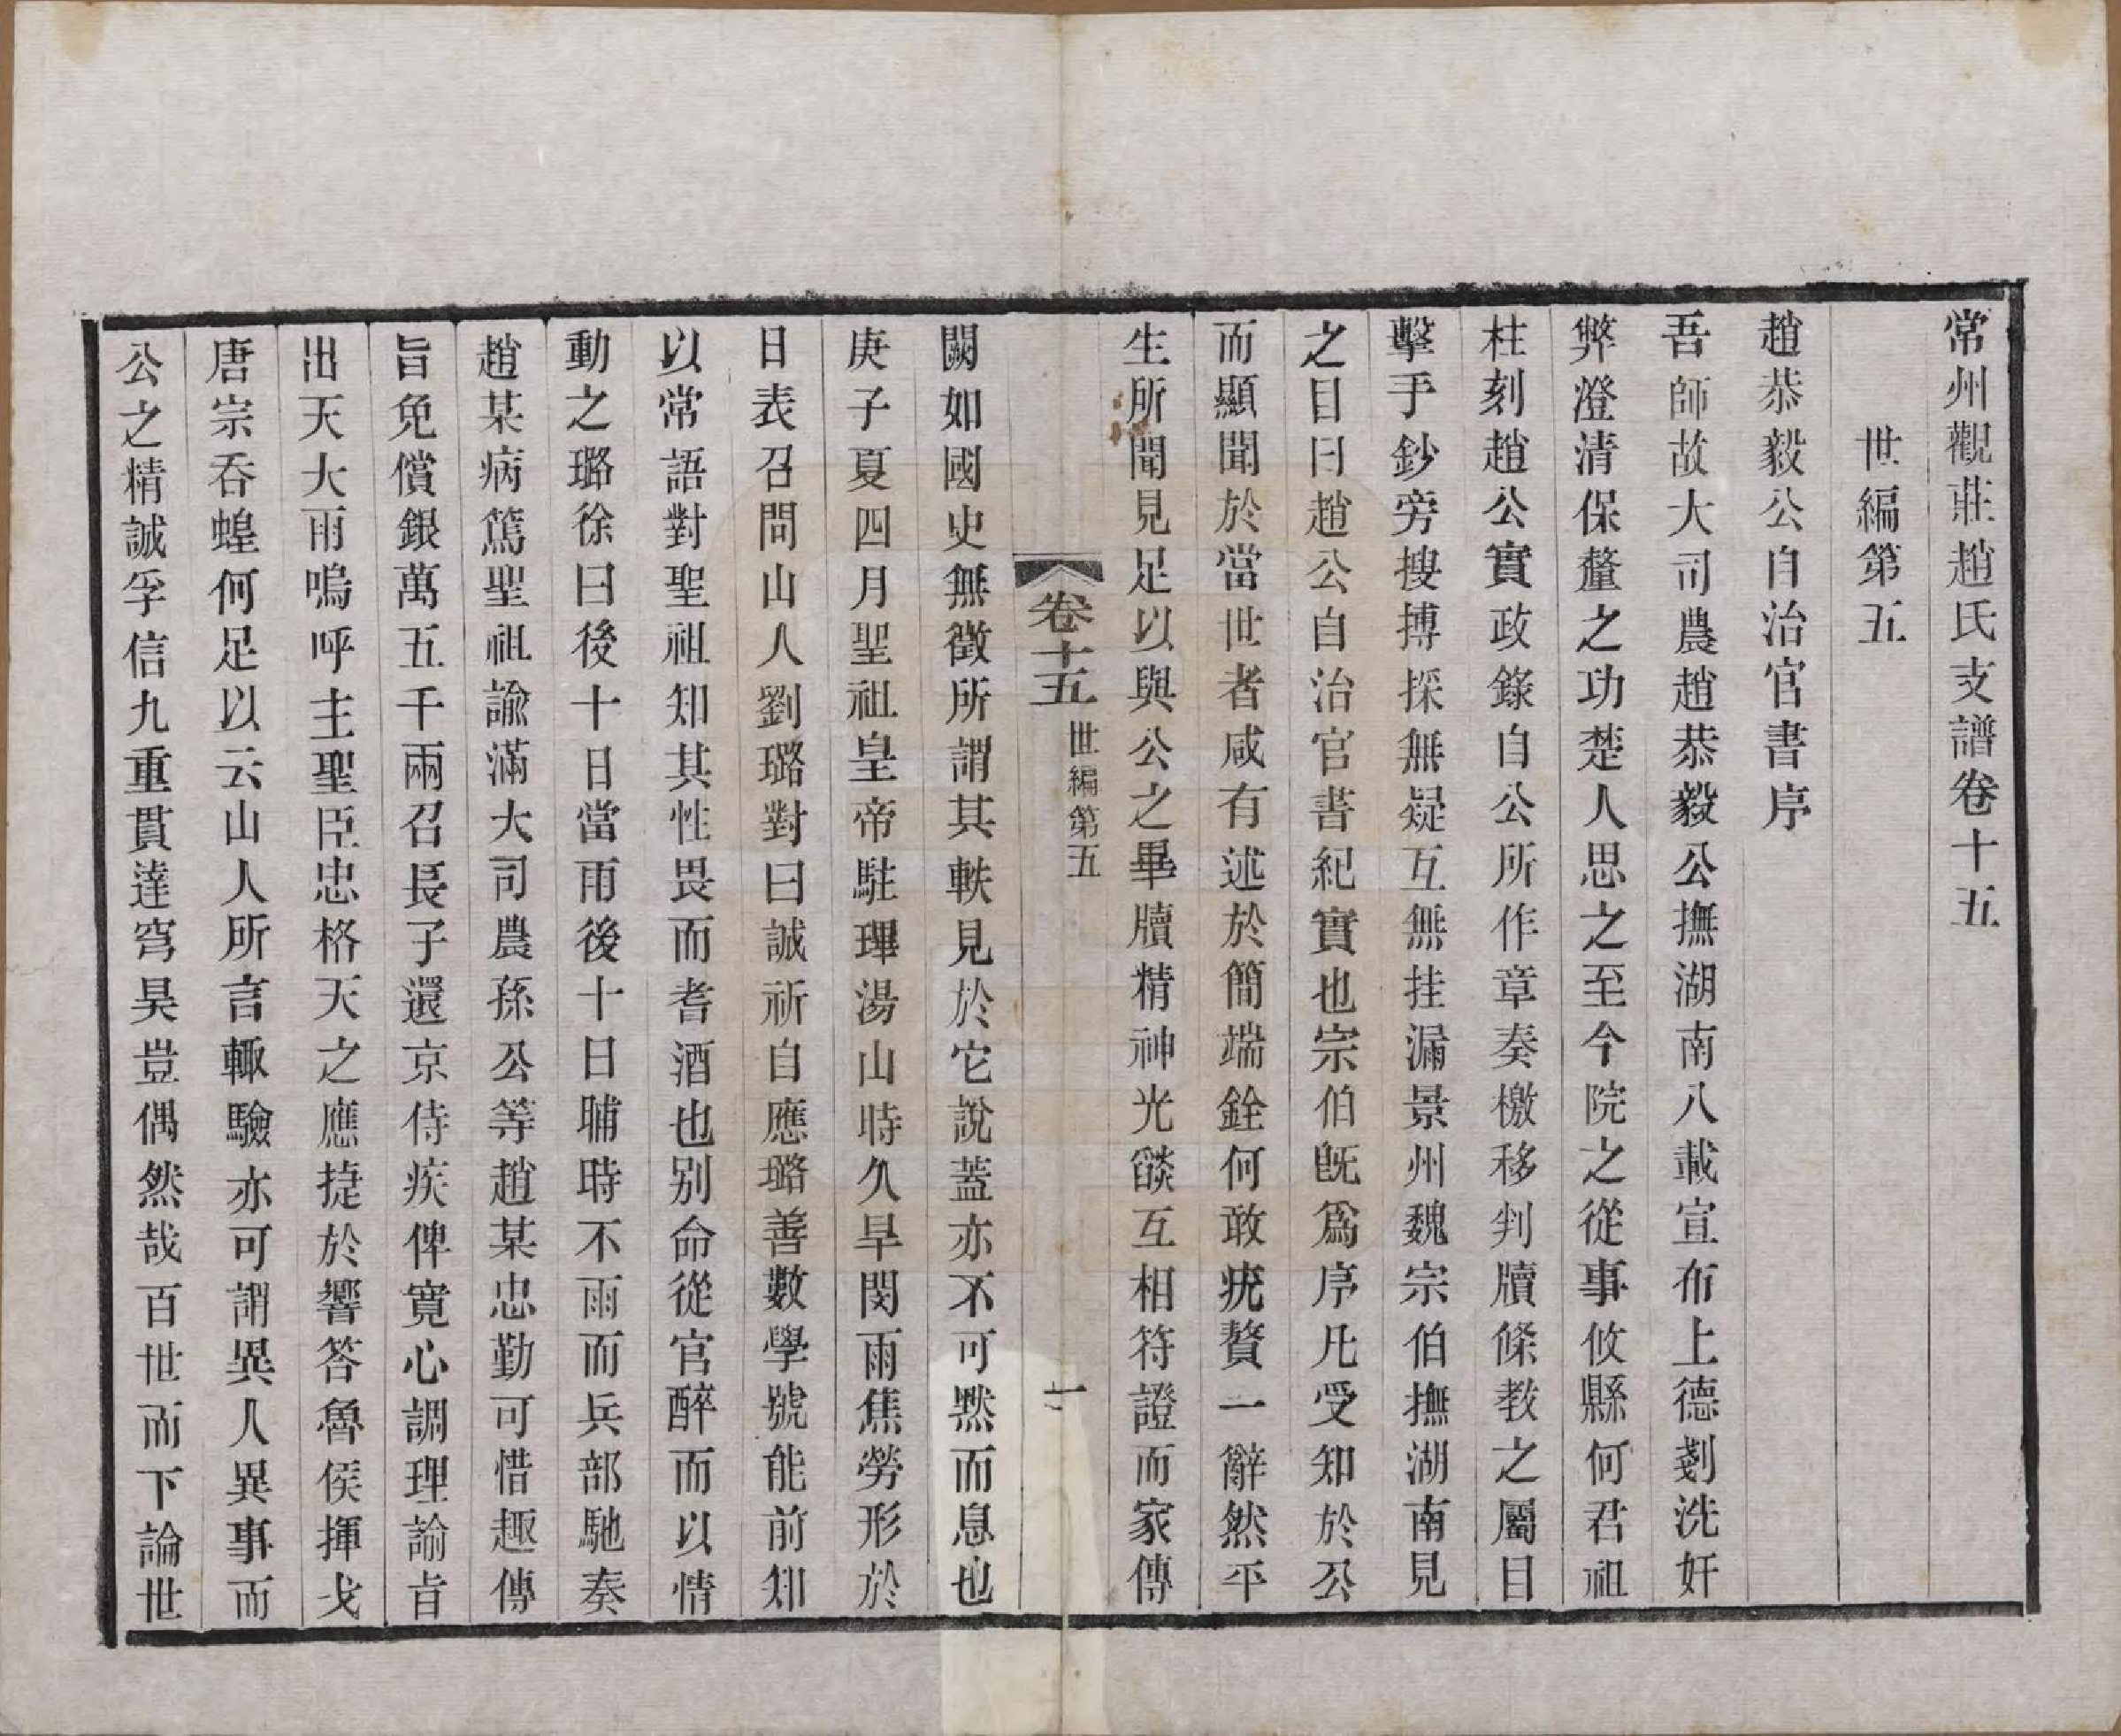 常州觀莊趙氏支譜卷十五
世編第五
趙恭毅公自治官書序
吾師故大司農趙恭毅公撫湖南八載宣布上德剗洗奸
弊澄清保釐之功楚人思之至今院之從事攸縣何君祖
柱刻趙公實政錄自公所作章奏檄移判牘條教之屬目
擊手鈔旁搜摶採無疑互無挂漏景州魏宗伯撫湖南見
之目曰趙公自治官書紀實也宗伯既爲序凡受知於公
而顯聞於當世者咸有述於簡端銓何敢疣贅一辭然平
生所聞見足以與公之畢牘精神光燄互相符證而家傳
卷十五
世編第五
一
闕如國史無徵所謂其軼見於它說蓋亦不可默而息也
庚子夏四月聖祖皇帝駐蹕湯山時久旱閔雨焦勞形於
日表召問山人劉璐對曰誠祈自應璐善數學號能前知
以常語對聖祖知其性畏而耆酒也别命從官醉而以情
動之璐徐曰後十日當雨後十日晡時不雨而兵部馳奏
趙某病篤聖祖諭滿大司農孫公等趙某忠勤可惜趣傳
旨免償銀萬五千兩召長子還京侍疾俾寬心調理諭旨
出天大雨嗚呼主聖臣忠格天之應捷於響答魯侯揮戈
唐宗吞蝗何足以云山人所言輒驗亦可謂異人異事而
公之精誠孚信九重貫達穹昊豈偶然哉百世而下論世